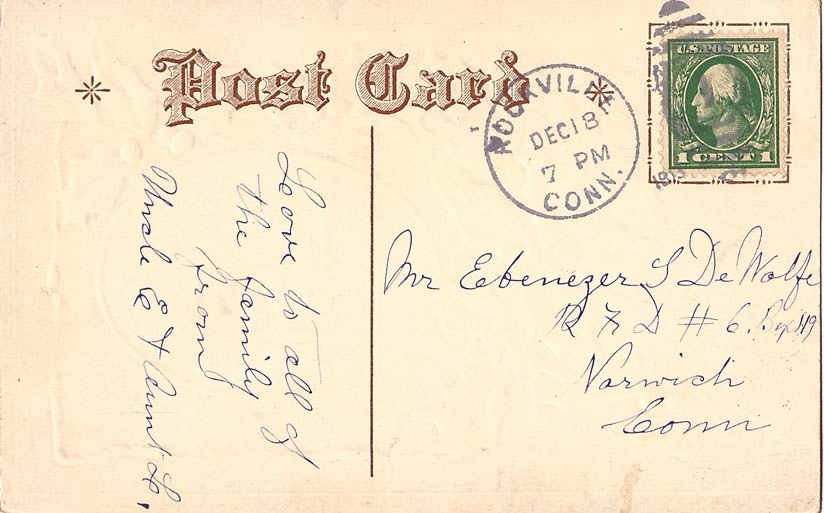 Post Card
ROCKVILLE
DEC 18
7 PM
CONN.
U.S. POSTAGE
1 CENT 1
Love to all of
the family
from
Uncle E & Aunt L.
Mr Ebenezer S DeWolfe
R F D # 6. Box 119
Norwich
Conn